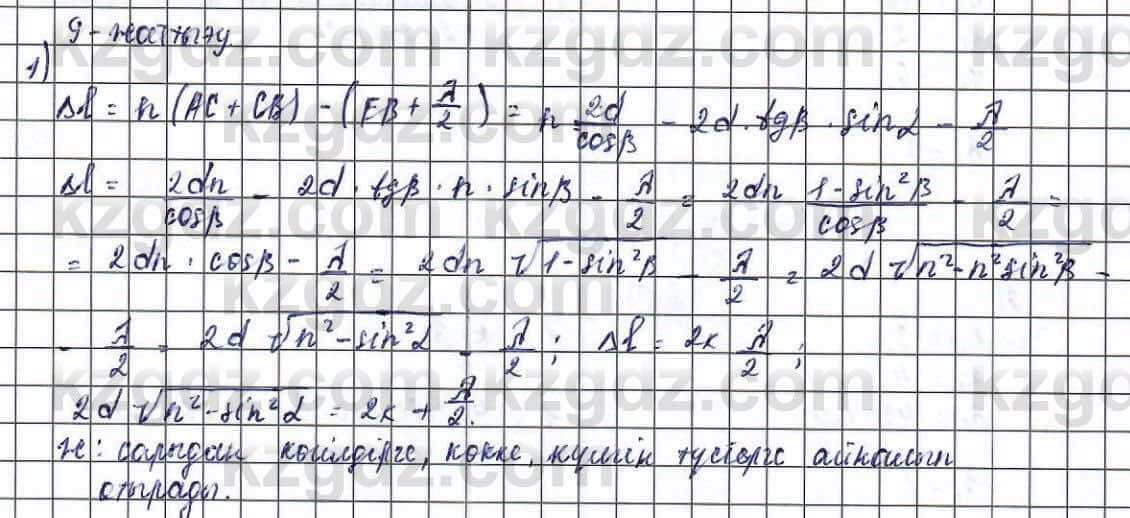 9-жаттығу.
1)
Δl = n(AC + CB) - (EB + λ/2) = n 2d/cosβ - 2d·tgβ·sinα - λ/2
Δl = 2dn/cosβ - 2d·tgβ·n·sinβ - λ/2 = 2dn (1-sin²β)/cosβ - λ/2 =
= 2dn·cosβ - λ/2 = 2dn √(1-sin²β) - λ/2 = 2d √(n²-n²sin²β) -
- λ/2 = 2d √(n²-sin²α) - λ/2; Δl = 2к λ/2;
2d √(n²-sin²α) = 2к + λ/2.
Ж: сарыдан көгілдірге, көкке, күлгін түстерге айналып
отырады.
kzgdz.com